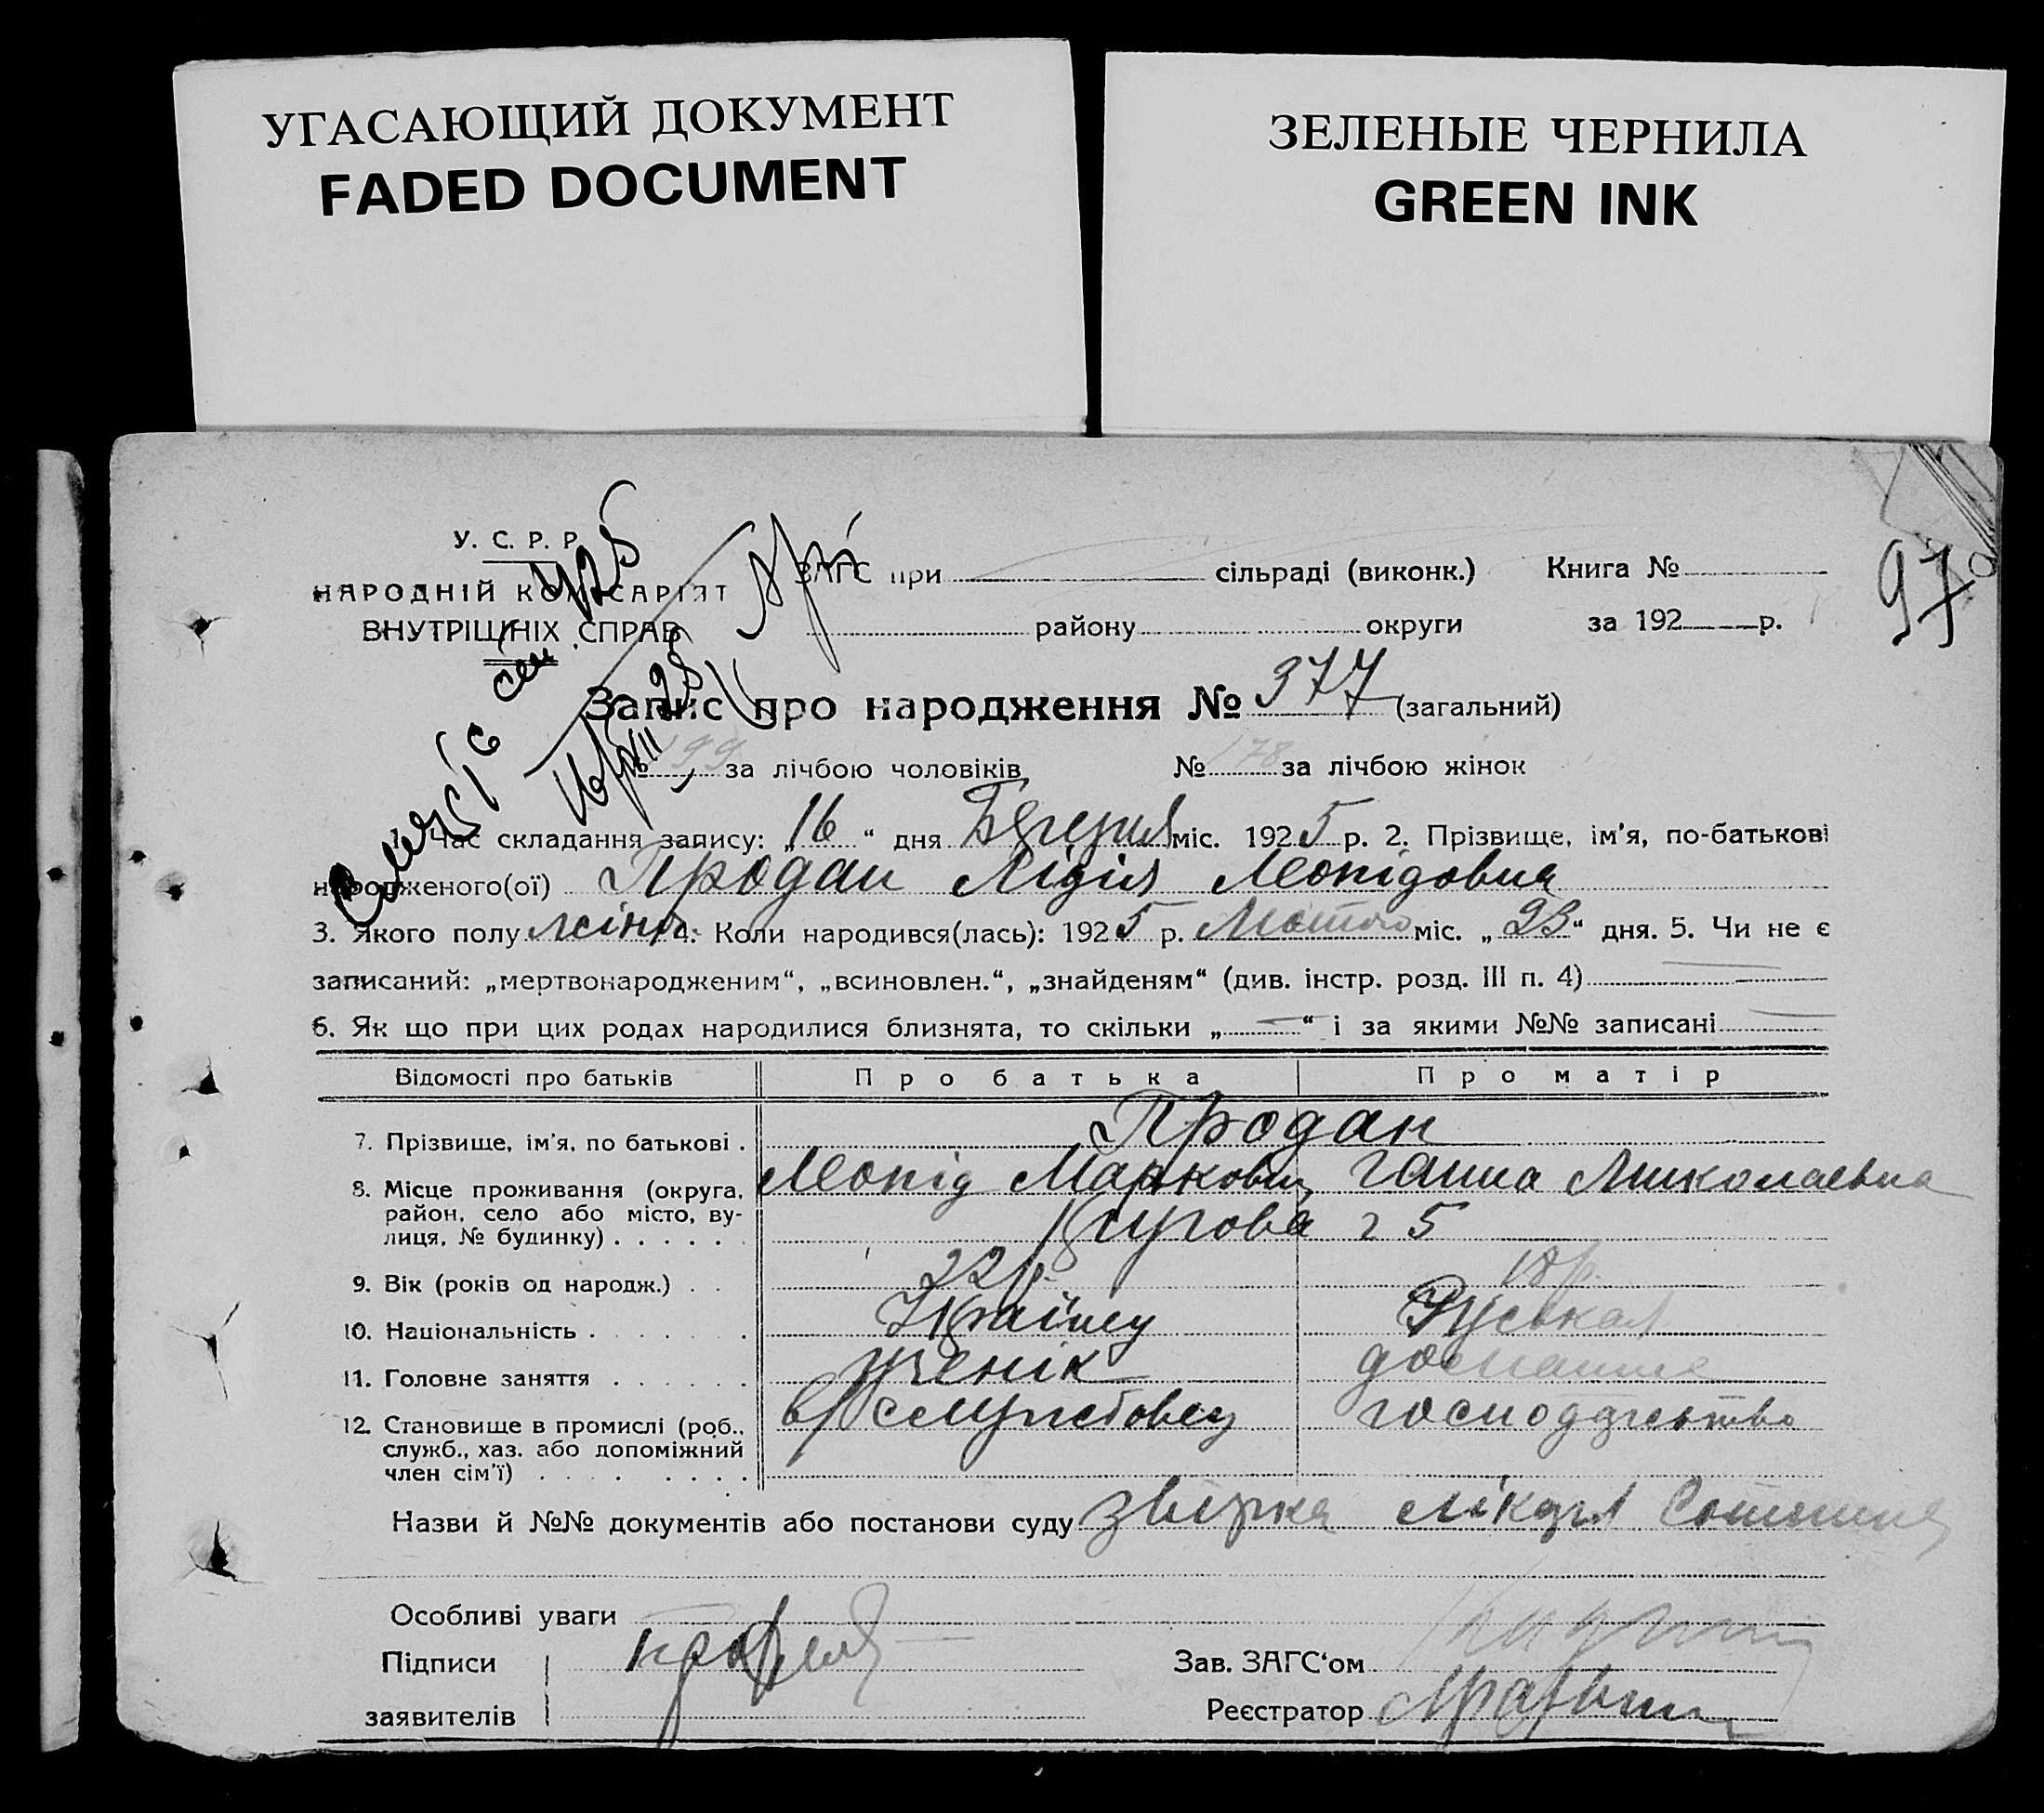 УГАСАЮЩИЙ ДОКУМЕНТ
FADED DOCUMENT
ЗЕЛЕНЫЕ ЧЕРНИЛА
GREEN INK
97
У. С. Р. Р.
НАРОДНІЙ КОМІСАРІЯТ
ВНУТРІШНІХ СПРАВ
ЗАГС при сільраді (виконк.) Книга №
району округи за 192 р.
Запис про народження № 377 (загальний)
№ 199 за лічбою чоловіків № 178 за лічбою жінок
1. Час складання запису: „16“ дня Березня міс. 1925 р. 2. Прізвище, ім'я, по-батькові
народженого(ої) Продан Лідія Леонідовна
3. Якого полу жіноч. 4. Коли народився(лась): 1925 р. Лютого міс. „23“ дня. 5. Чи не є
записаний: „мертвонародженим“, „всиновлен.“, „знайденям“ (див. інстр. розд. III п. 4)
6. Як що при цих родах народилися близнята, то скільки „—“ і за якими №№ записані
Відомості про батьків Про батька Про матір
7. Прізвище, ім'я, по батькові . Продан
Леонід Маркович Ганна Миколаевна
8. Місце проживання (округа, район, село або місто, вулиця, № будинку) . . . . . . 5
9. Вік (років од народж.) . . 22 р. 18 р.
10. Національність . . . . . . . Українец Руськая
11. Головне заняття . . . . . . ученік домашнє
12. Становище в промислі (роб., служб., хаз. або допоміжний член сім'ї) . . . . . . . . службовец господарьство
Назви й №№ документів або постанови суду лікаря
Особливі уваги
Підписи
заявителів
Зав. ЗАГС'ом
Реєстратор